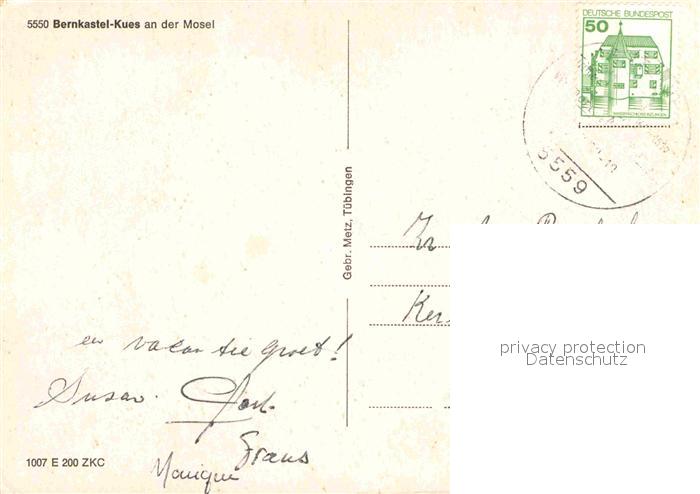 5550 Bernkastel-Kues an der Mosel
50 DEUTSCHE BUNDESPOST
WASSERSCHLOSS INZLINGEN
5559
Gebr. Metz, Tübingen
een vacantie groet!
Susan.
Frans
Monique
1007 E 200 ZKC
privacy protection
Datenschutz